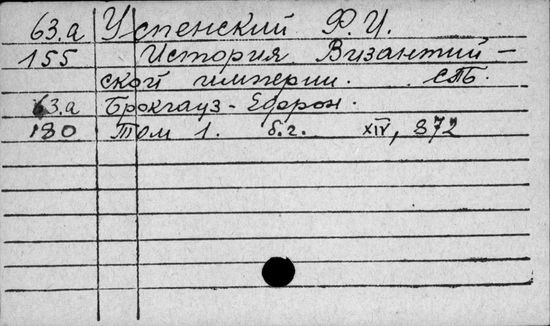 63.а Успенский Ф.И.
155 История Византий-
ской империи. СПБ.
63.а Брокгауз-Ефрон.
180 Том 1. б.г. XIV, 872